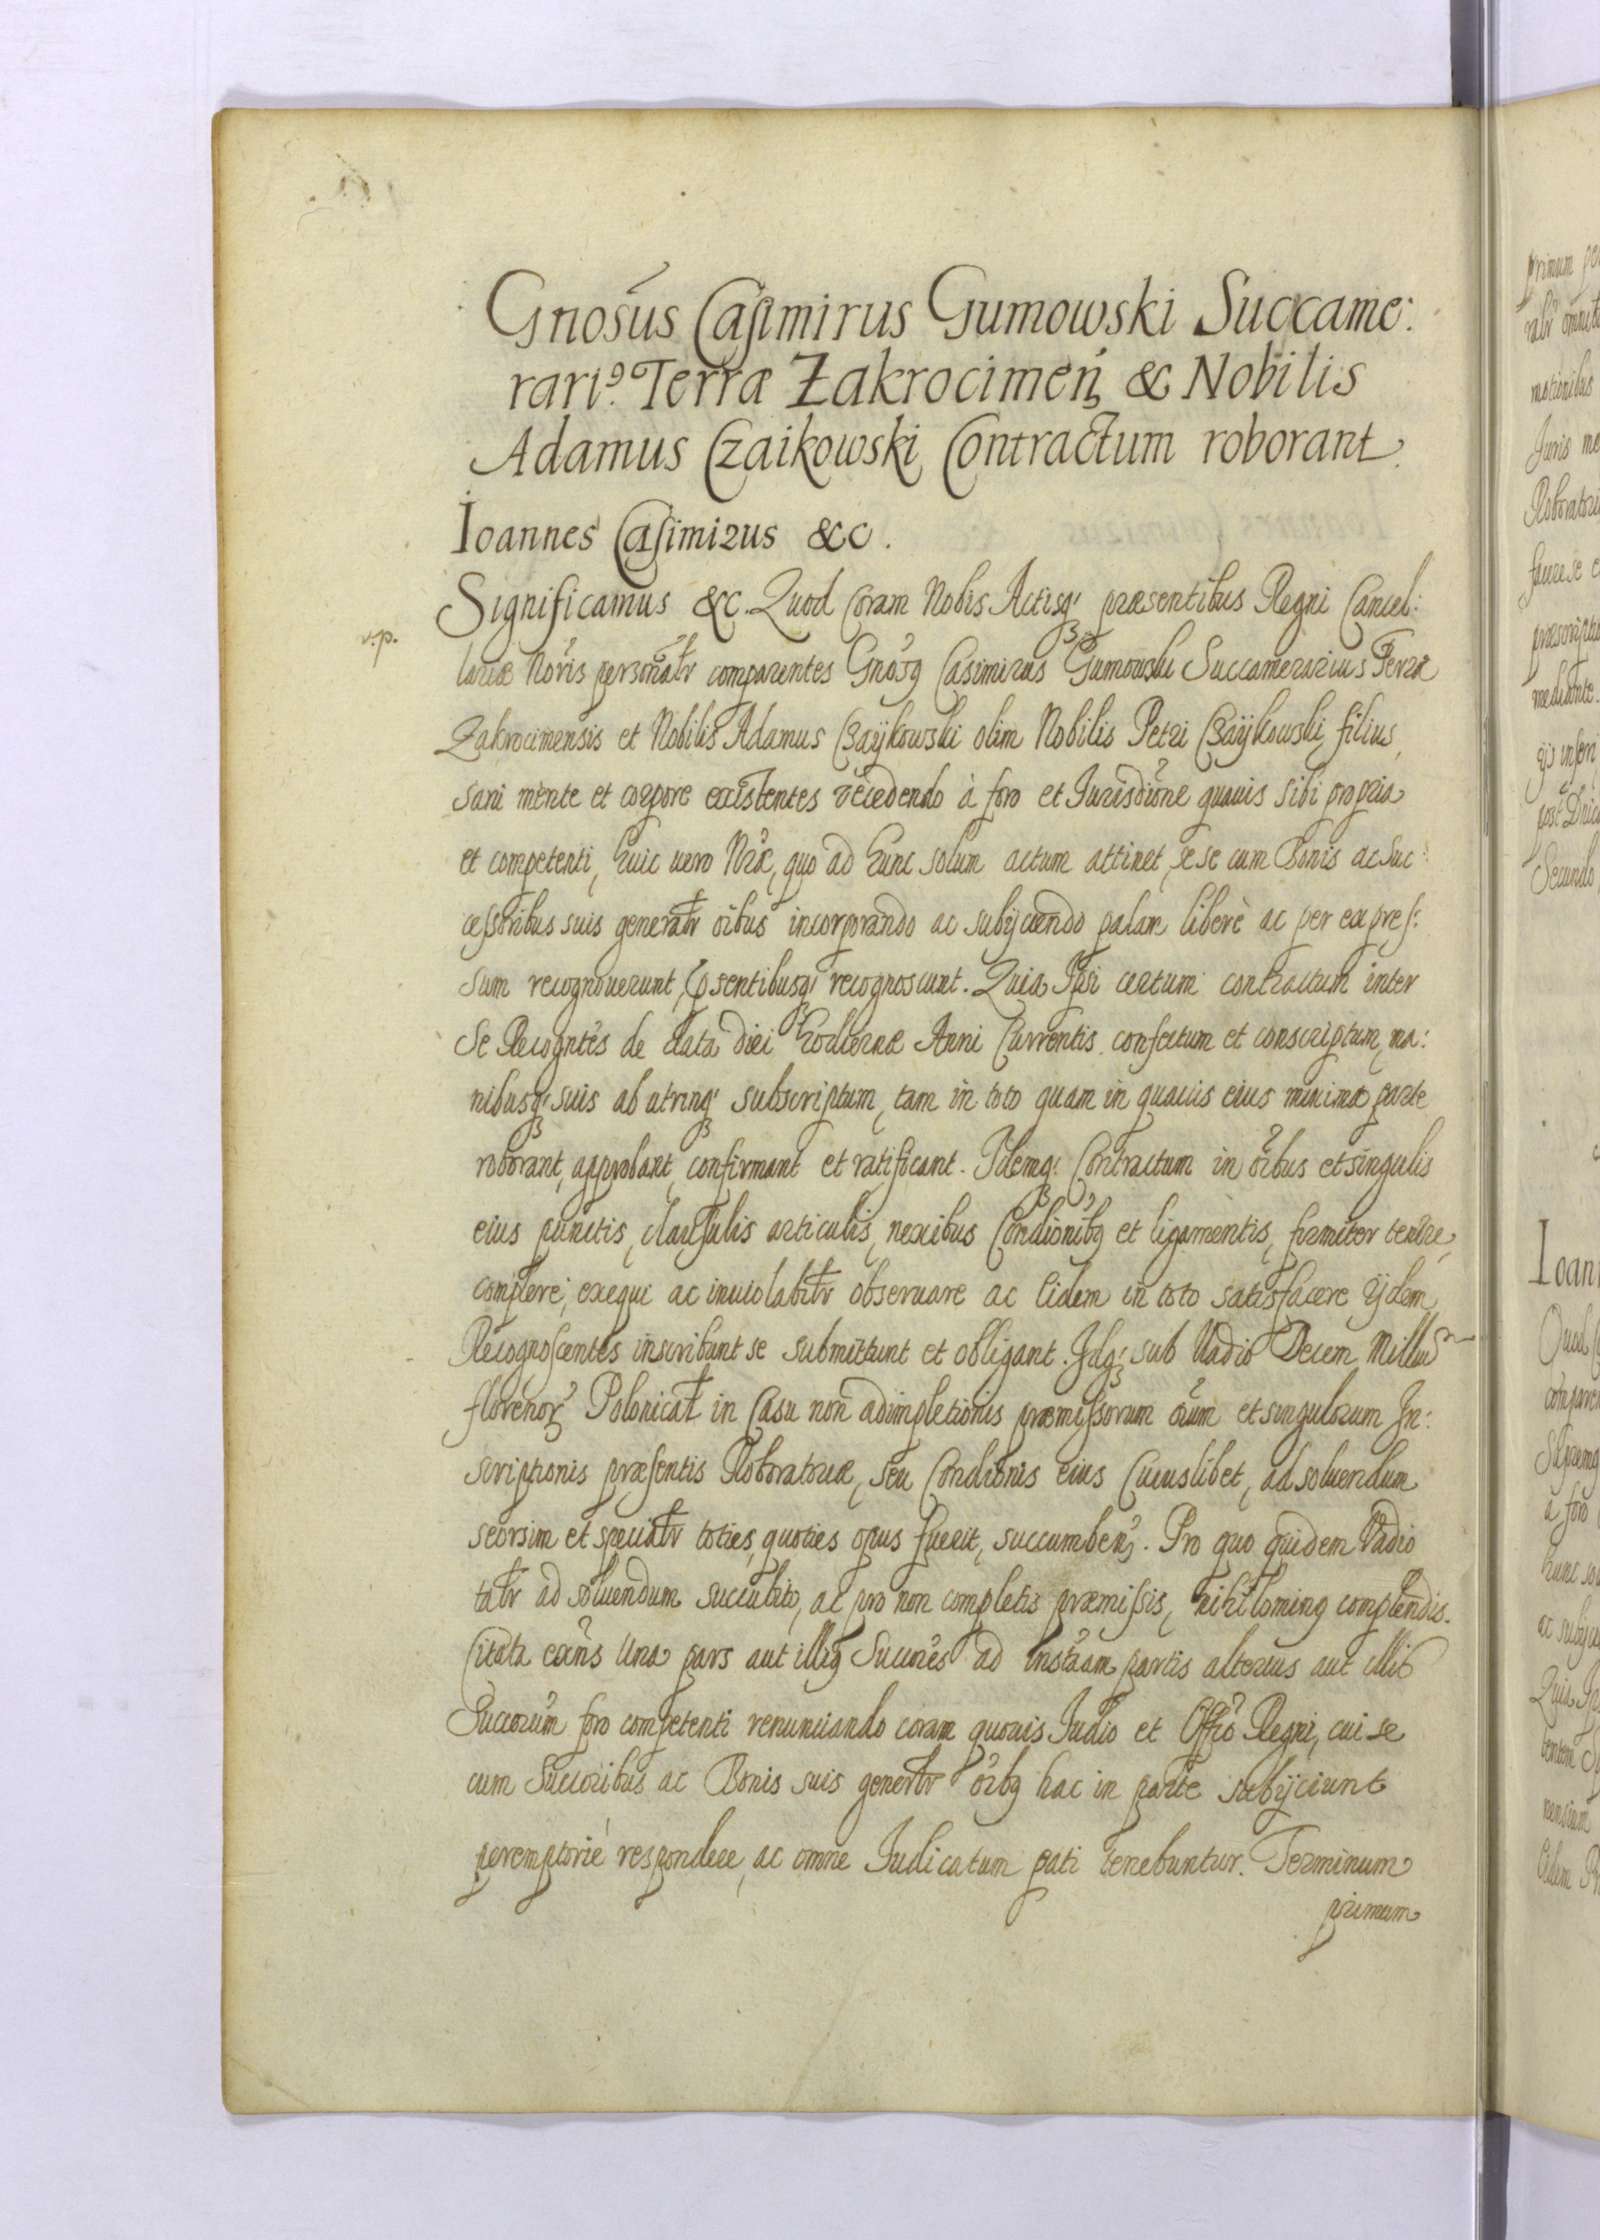 Gnosus Casimirus Gumowski Succame:
rari9. Terræ Zakrocimen & Nobilis
Adamus Czaikowski Contractum roborant.
Ioannes Casimirus &c.
Significamus &c. Quod Coram Nobis Actisq; præsentibus Regni Cancel:
v.p.
lariæ Nris personalr comparentes Gnosq Casimirus Gumowski Succamerarius Terræ
Zakrocimensis et Nobilis Adamus Czaÿkowski olim Nobilis Petri Czaÿkowski filius,
sani mente et corpore existentes recedendo à foro et Jurisdione quauis sibi propria
et competenti, huic uero Nræ, quo ad hunc solum actum attinet, se se cum Bonis ac Suc:
cessoribus suis generalr oibus incorporando ac subijciendo palam liberè ac per expres:
sum recognouerunt, psentibusq; recognoscunt. Quia Ipsi certum contractum inter
se Recogntes de data diei hodiernæ Anni Currentis confectum et conscriptum, ma:
nibusq; suis ab utrinq; subscriptum, tam in toto quam in quauis eius minima parte
roborant, approbant, confirmant et ratificant. Idemq; Contractum in oibus et singulis
eius punctis, clausulis articulis, nexibus Condionibq et ligamentis, firmiter tenere,
complere, exequi ac inuiolabilr obseruare ac eidem in toto satisfacere ijdem
Recognoscentes inscribunt se submittunt et obligant. Idq; sub Vadio Decem Millium
florenor Polonical in Casu non adimpletionis præmissorum oium et singulorum In:
scriptionis præsentis Roboratoriæ, seu Condionis eius Cuiuslibet, ad soluendum
seorsim et specialr toties, quoties opus fuerit, succumben. Pro quo quidem Vadio
talr ad soluendum succubito, ac pro non completis præmissis, nihilominq complendis.
Citata exns Una pars aut illiq Succres ad instaam partis alterius aut illiq
Succorum foro competenti renunciando coram quouis Judio et Offio Regni, cui se
cum Succoribus ac Bonis suis generlr oibq hac in parte subijciunt
peremptoriè respondere, ac omne Iudicatum pati tenebuntur. Terminum
primum